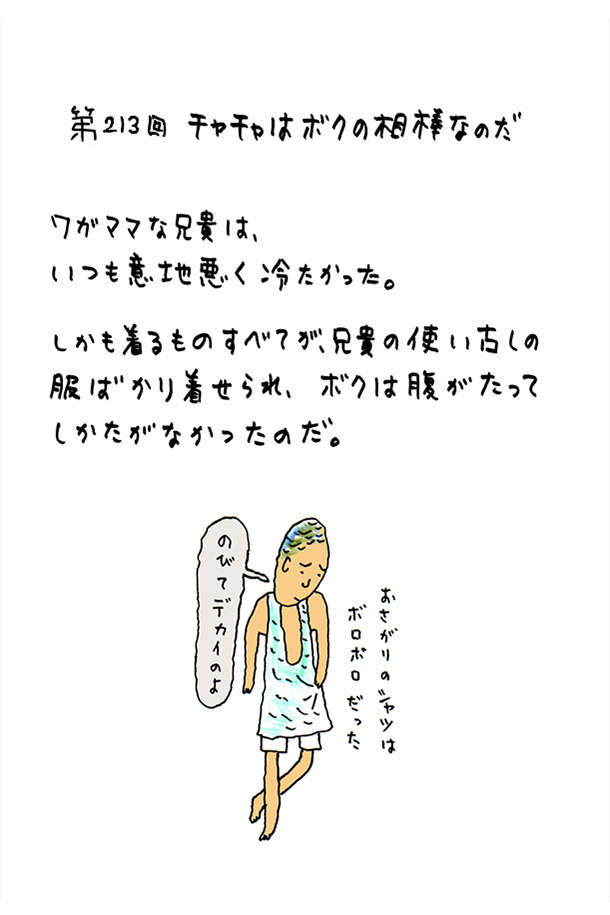 第213回 チャチャはボクの相棒なのだ
ワガママな兄貴は、
いつも意地悪く冷たかった。
しかも着るものすべてが、兄貴の使い古しの
服ばかり着せられ、ボクは腹がたって
しかたがなかったのだ。
のびてデカイのよ
おさがりのシャツは
ボロボロだった